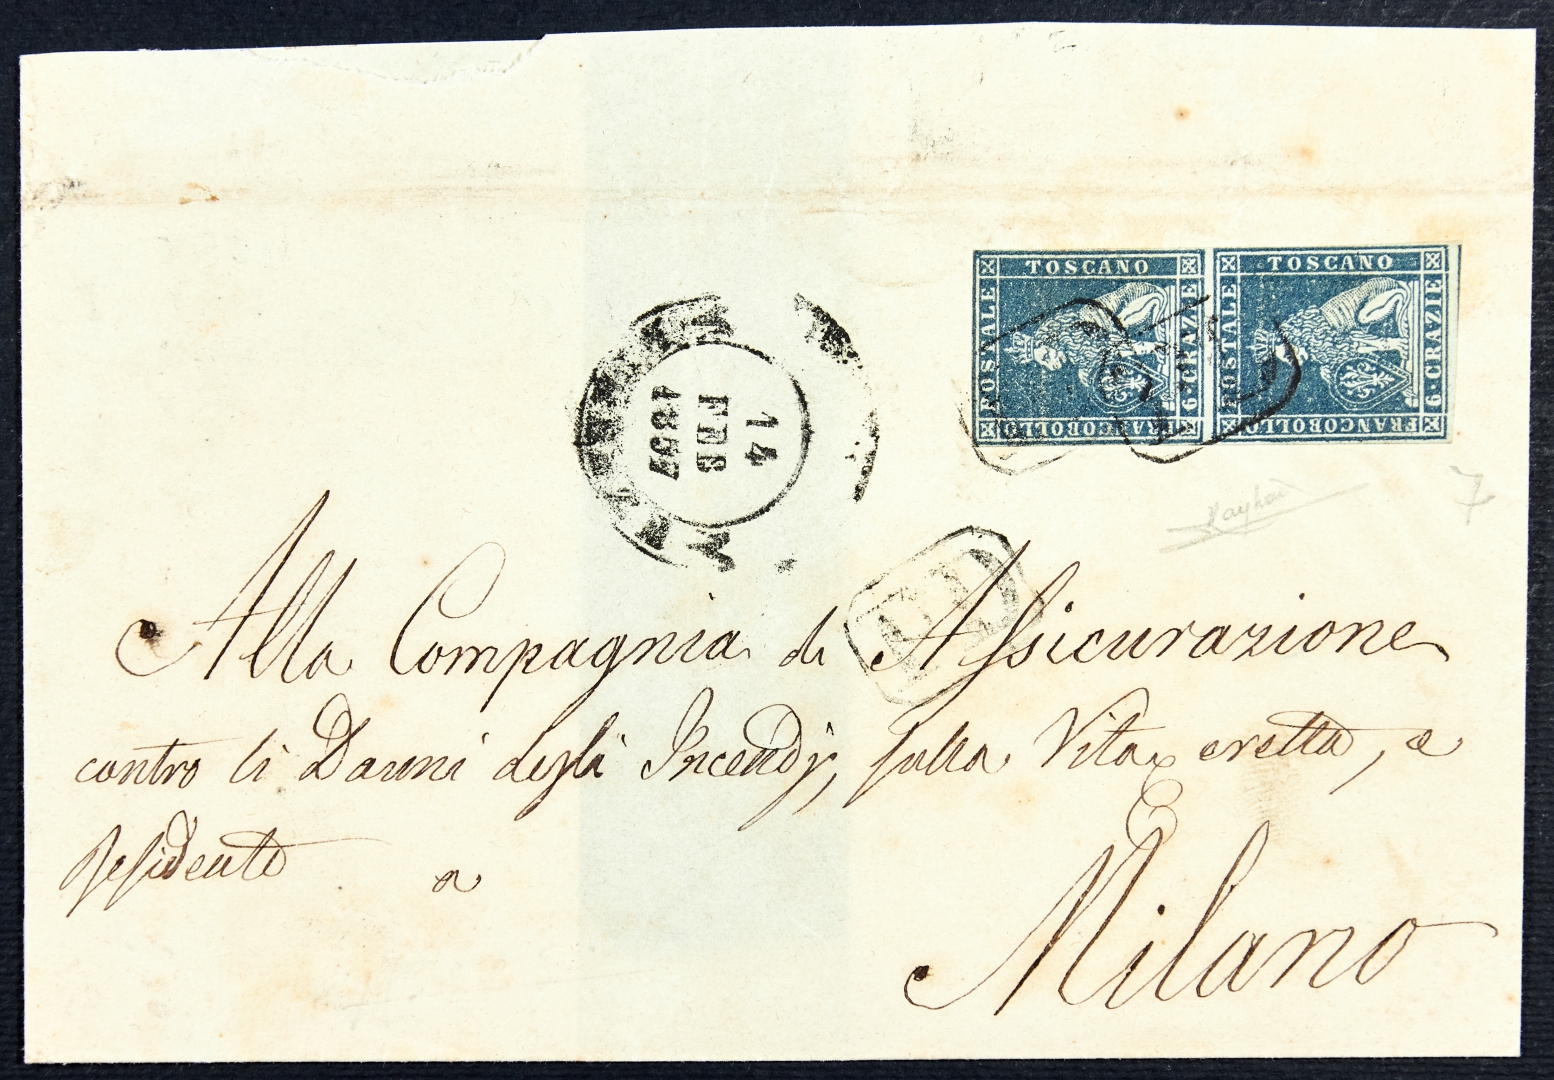 FRANCOBOLLO POSTALE TOSCANO 6·CRAZIE
FRANCOBOLLO POSTALE TOSCANO 6·CRAZIE
14
FEB
1857
7
PD
Alla Compagnia di Assicurazione
contro li Danni degli Incendj, sulla Vita eretta, e
residente a
Milano